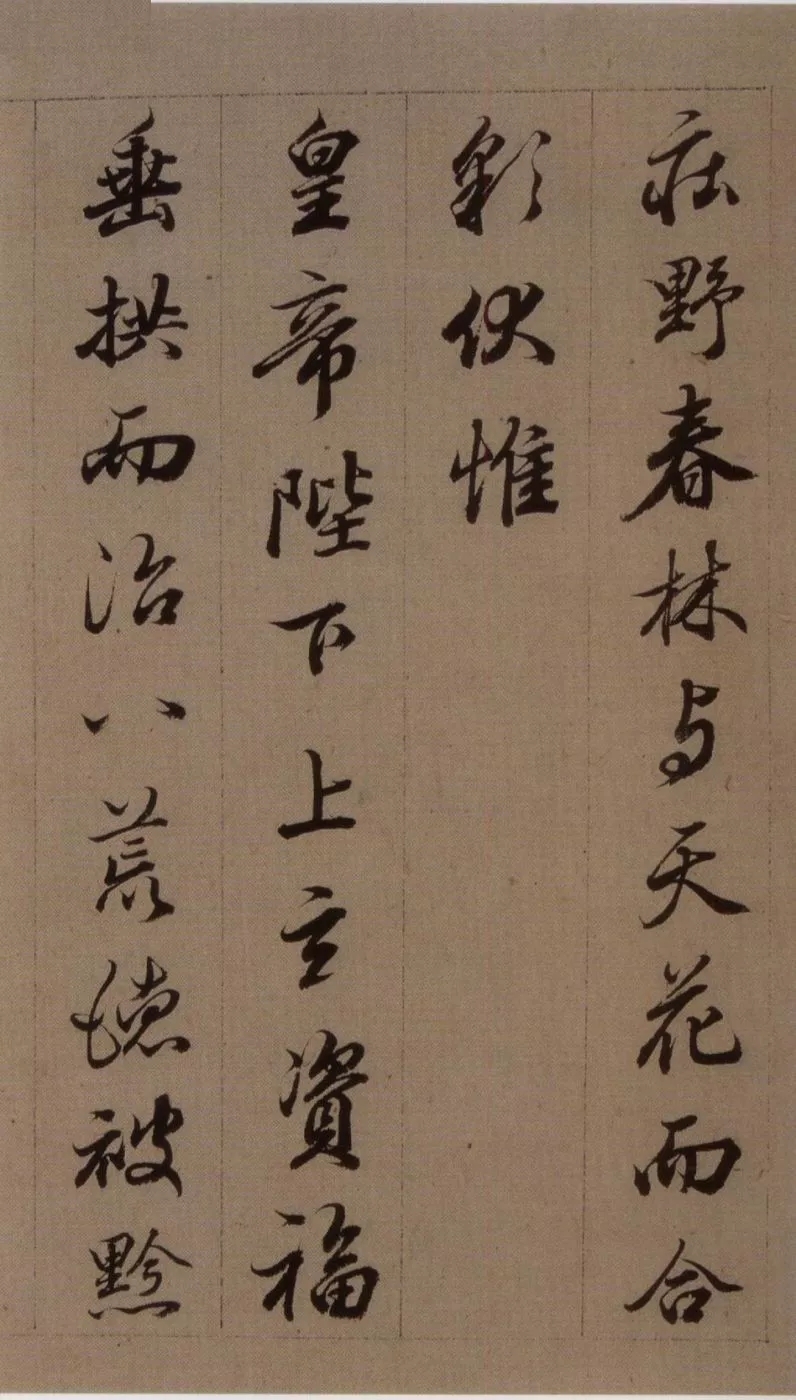 庄野春林与天花而合
彩伏惟
皇帝陛下上玄資福
垂拱而治八荒德被黔